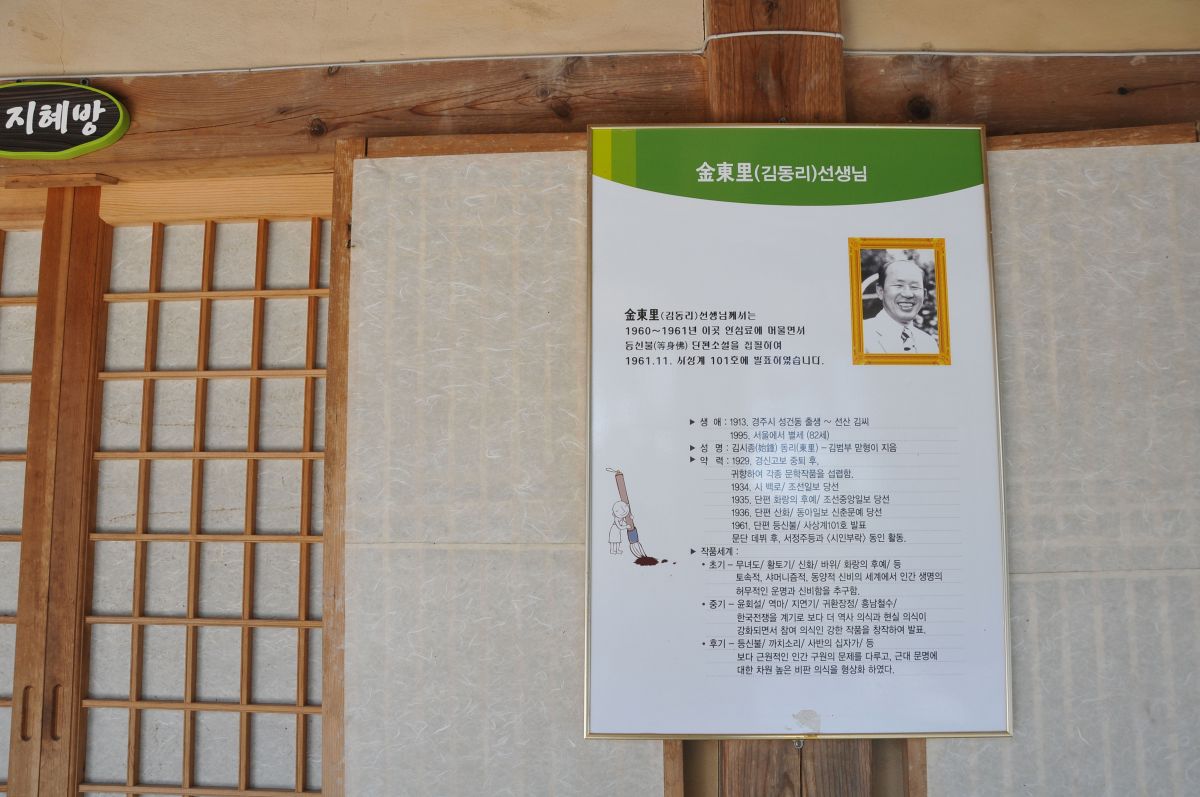 지혜방
金東里(김동리)선생님
金東里(김동리)선생님께서는
1960~1961년 이곳 안심료에 머물면서
등신불(等身佛) 단편소설을 집필하여
1961.11. 사상계 101호에 발표하였습니다.
▶ 생 애 : 1913. 경주시 성건동 출생 ~ 선산 김씨
1995. 서울에서 별세 (82세)
▶ 성 명 : 김시종(始鍾) 동리(東里) - 김범부 맏형이 지음
▶ 약 력 : 1929. 경신고보 중퇴 후,
귀향하여 각종 문학작품을 섭렵함.
1934. 시 백로/ 조선일보 당선
1935. 단편 화랑의 후예/ 조선중앙일보 당선
1936. 단편 산화/ 동아일보 신춘문예 당선
1961. 단편 등신불/ 사상계101호 발표
문단 데뷔 후, 서정주등과 〈시인부락〉 동인 활동.
▶ 작품세계 :
• 초기 - 무녀도/ 황토기/ 신화/ 바위/ 화랑의 후예/ 등
토속적, 샤머니즘적, 동양적 신비의 세계에서 인간 생명의
허무적인 운명과 신비함을 추구함.
• 중기 - 윤회설/ 역마/ 지연기/ 귀환장정/ 흥남철수/
한국전쟁을 계기로 보다 더 역사 의식과 현실 의식이
강화되면서 참여 의식인 강한 작품을 창작하여 발표.
• 후기 - 등신불/ 까치소리/ 사반의 십자가/ 등
보다 근원적인 인간 구원의 문제를 다루고, 근대 문명에
대한 차원 높은 비판 의식을 형상화 하였다.